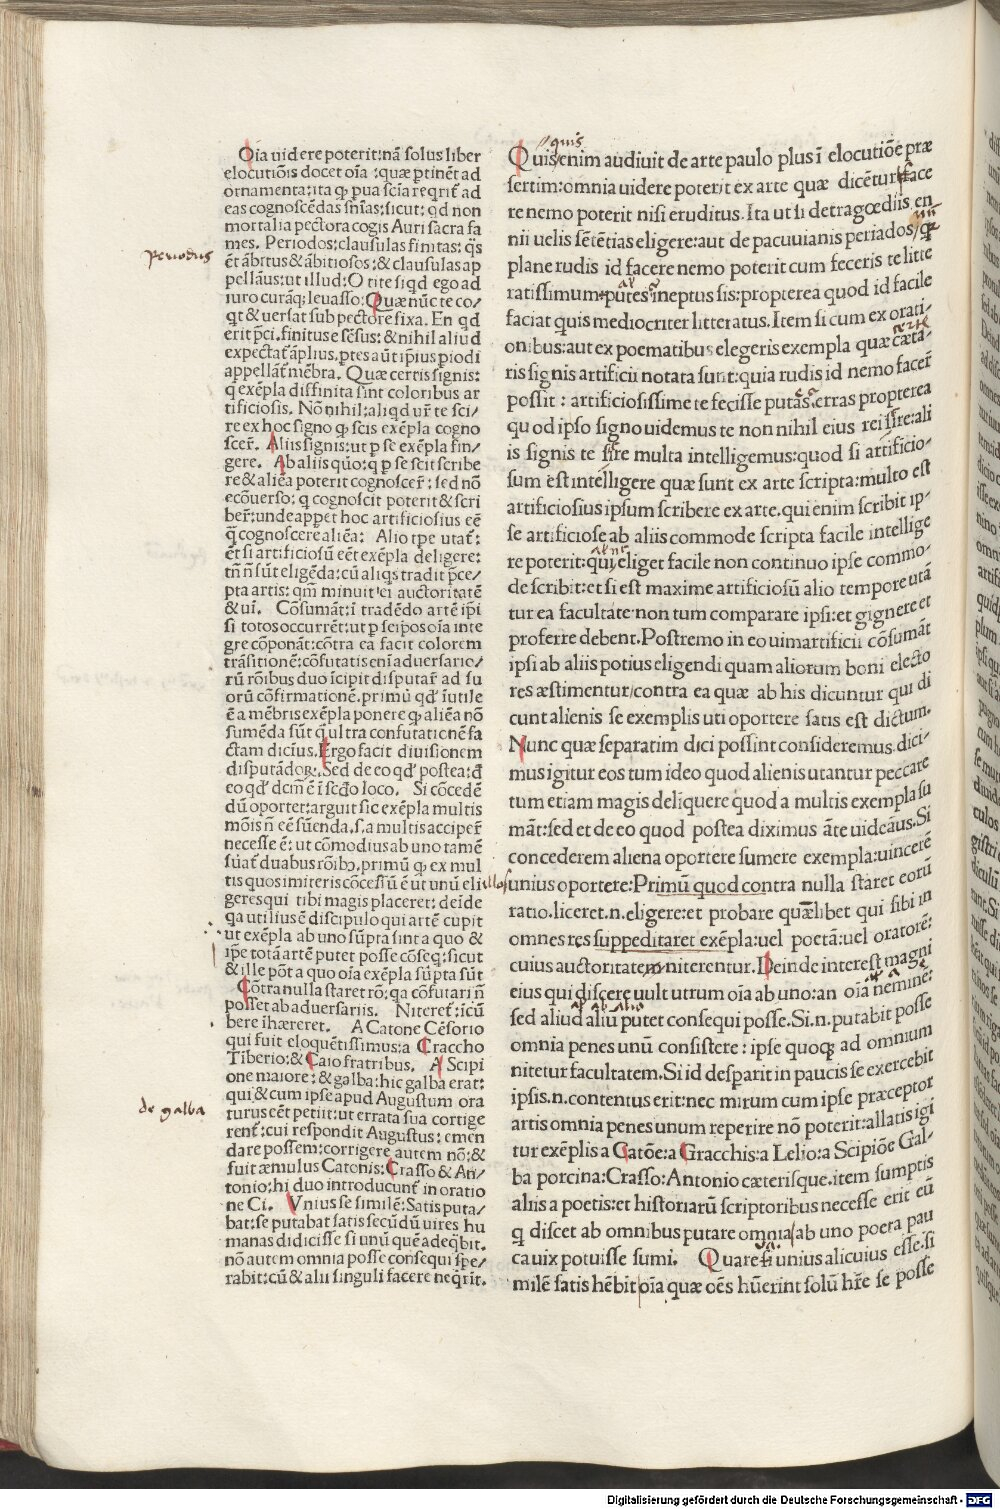 Oīa uidere poterit: nā solus liber
elocutiōis docet oīa: quæ ꝑtinēt ad
ornamenta: ita ꝙ ꝑua scīa reqrit̄ ad
eas cognoscēdas sn̄ias: sicut: qd non
mortalia pectora cogis Auri sacra fa
mes. Periodos: clausulas finitas: q̄s
ēt ābitus & ābitiosos: & clausulas ap
pellāus: ut illud: O tite siqd ego ad
iuro curāq; leuasso: Quæ nūc te co/
qt & uersat sub pectore fixa. En qd
erit p̄ci. finitus e sēsus: & nihil aliud
expectat̄ āplius. ptes aūt ip̄ius piodi
appellāt mēbra. Quæ certis signis:
q exēpla diffinita sint coloribus ar
tificiosis. Nō nihil: aliqd ur̄ te sci/
re ex hoc signo ꝙ scis exēpla cogno
scer̄. Aliis signis: ut p se exēpla fin/
gere. Ab aliis quo: q p se scit scribe
re & aliēa poterit cognoscer̄: sed nō
ecōuerso: q cognoscit poterit & scri
ber̄: unde appet hoc artificiosius eē
q̄ cognoscere aliēa: Alio tpe utat̄:
ēt si artificiosū eēt exēpla deligere:
tn̄ n̄ sūt eligēda: cū aliqs tradit p̄ce/
pta artis: qm̄ minuit ei auctoritatē
& uī. Cōsumāt: ī tradēdo artē ip̄i
si totos occurrēt: ut p seipos oīa inte
gre cōponāt: cōtra ea facit colorem
trāsitionē: cōfutatis enī aduersario/
rū rōibus duo īcipit disputat̄ ad su
orū cōfirmationē. primū qd̄ īutile
ē a mēbris exēpla ponere ꝙ aliēa nō
sumēda sūt q̄ ultra confutationē fa
ctam dicīus. Ergo facit diuisionem
disputādoꝝ. Sed de eo qd̄ postea: d̄
eo qd̄ dcm̄ ē ī scd̄o loco. Si cōcedē
dū oportet: arguit sic exēpla multis
mōis n̄ eē sūenda. s. a multis acciper̄
necesse ē: ut cōmodius ab uno tamē
sūat̄ duabus rōibꝰ. primū ꝙ ex mul
tis quos imiteris cōcessū ē ut unū eli
geres qui tibi magis placeret: deide
qa utilius ē discipulo qui artē cupit
ut exēpla ab uno sūpta sint a quo &
ip̄e totā artē putet posse cōseq: sicut
& ille pōt a quo oīa exēpla sūpta sūt
Cōtra nulla staret rō: qa cōfutari n̄
posset ab aduersariis. Niteret̄: īcū
bere īhæreret. A Catone Cēsorio
qui fuit eloquētissimus: a Craccho
Tiberio: & Caio fratribus. A Scipi
one maiore: & galba: hic galba erat:
qui & cum ipse apud Augustum ora
turus eēt petiit: ut errata sua corrige
rent̄: cui respondit Augustus: emen
dare possem: corrigere autem nō: &
fuit æmulus Catonis: Crasso & An/
tonio: hi duo introducunt̄ in oratio
ne Ci. Vnius se similē: Satis puta/
bat: se putabat satis secūdū uires hu
manas didicisse si unū quē adeq̄bit.
nō autem omnia posse consequi spe/
rabit: cū & alii singuli facere neq̄rit.
Periodus
de galba
quis
Quis enim audiuit de arte paulo plus ī elocutiōe præ
sertim: omnia uidere poterit ex arte quæ dicētur: face
re nemo poterit nisi eruditus. Ita ut si de tragœdiis en
nii uelis sētētias eligere: aut de pacuuianis periados: ꝙ
plane rudis id facere nemo poterit cum feceris te litte
ratissimum putes ineptus sis: propterea quod id facile
faciat quis mediocriter litteratus. Item si cum ex orati-
onibus: aut ex poematibus elegeris exempla quæ cæta-
ris signis artificii notata sunt: quia rudis id nemo facer̄
possit: artificiosissime te fecisse putas: erras propterea
quod ipso signo uidemus te non nihil eius rei sire: ali
is signis te sire multa intelligemus: quod si artificio-
sum est intelligere quæ sunt ex arte scripta: multo est
artificiosius ipsum scribere ex arte. qui enim scribit ip-
se artificiose ab aliis commode scripta facile intellige
re poterit: qui eliget facile non continuo ipse commo-
de scribit: et si est maxime artificiosū alio tempore utā
tur ea facultate: non tum comparare ipsi: et gignere et
proferre debent. Postremo in eo uim artificii cōsumāt
ipsi ab aliis potius eligendi quam aliorum boni electo
res æstimentur: contra ea quæ ab his dicuntur qui di
cunt alienis se exemplis uti oportere satis est dictum.
Nunc quæ separatim dici possint consideremus. dici-
mus igitur eos tum ideo quod alienis utantur peccare
tum etiam magis deliquere quod a multis exempla su
māt: sed et de eo quod postea diximus āte uideāus. Si
concederem aliena oportere sumere exempla: uincerē
unius oportere: Primū quod contra nulla staret eorū
ratio. liceret .n. eligere: et probare quælibet qui sibi in
omnes res suppeditaret exēpla: uel poetā: uel oratorē:
cuius auctoritatem niterentur. Deinde interest magni
eius qui discere uult utrum oīa ab uno: an oīa neminē:
sed aliud aliū putet consequi posse. Si .n. putabit posse
omnia penes unū consistere: ipse quoq; ad omnium
nitetur facultatem. Si id desparit in paucis se exercebit
ipsis .n. contentus erit: nec mirum cum ipse præceptor
artis omnia penes unum reperire nō poterit: allatis igi
tur exēplis a Catōe: a Gracchis: a Lelio: a Scipiōe Gal-
ba porcina: Crasso: Antonio cæterisque. item sumptis
aliis a poetis: et historiarū scriptoribus necesse erit eū
q discet ab omnibus putare omnia ab uno poera pau
ca uix potuisse sumi. Quare si unius alicuius esse. si
milē satis hēbit oīa quæ oēs hūerint solū hr̄e se posse
Digitalisierung gefördert durch die Deutsche Forschungsgemeinschaft - DFG